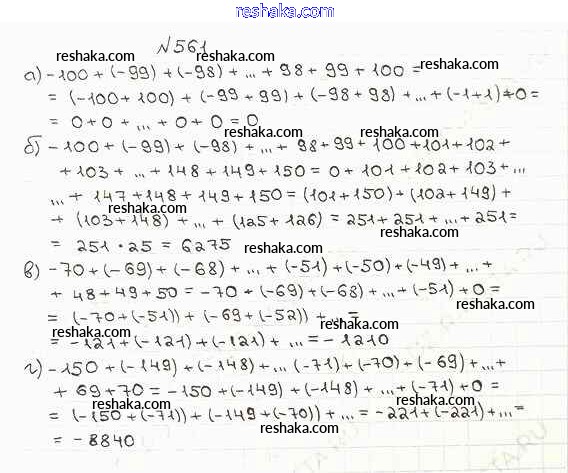 reshaka.com
№561
reshaka.com reshaka.com
а) -100 + (-99) + (-98) + ... + 98 + 99 + 100 =
reshaka.com
= (-100 + 100) + (-99 + 99) + (-98 + 98) + ... + (-1+1)+0 =
reshaka.com
= 0 + 0 + ... + 0 + 0 = 0
reshaka.com
б) -100 + (-99) + (-98) + ... + 98 + 99 + 100 + 101 + 102 +
reshaka.com
+ 103 + ... + 148 + 149 + 150 = 0 + 101 + 102 + 103 + ...
reshaka.com reshaka.com
... + 147 + 148 + 149 + 150 = (101 + 150) + (102 + 149) +
reshaka.com
+ (103 + 148) + ... + (125 + 126) = 251 + 251 + ... + 251 =
reshaka.com
= 251 · 25 = 6275
reshaka.com
в) -70 + (-69) + (-68) + ... + (-51) + (-50) + (-49) + ... +
reshaka.com
+ 48 + 49 + 50 = -70 + (-69) + (-68) + ... + (-51) + 0 =
reshaka.com
= (-70 + (-51)) + (-69 + (-52)) + ... =
reshaka.com
= -121 + (-121) + (-121) + ... = -1210
reshaka.com
г) -150 + (-149) + (-148) + ... (-71) + (-70) + (-69) + ... +
reshaka.com
+ 69 + 70 = -150 + (-149) + (-148) + ... + (-71) + 0 =
reshaka.com reshaka.com
= (-150 + (-71)) + (-149 + (-70)) + ... = -221 + (-221) + ... =
reshaka.com
= -8840
reshaka.com